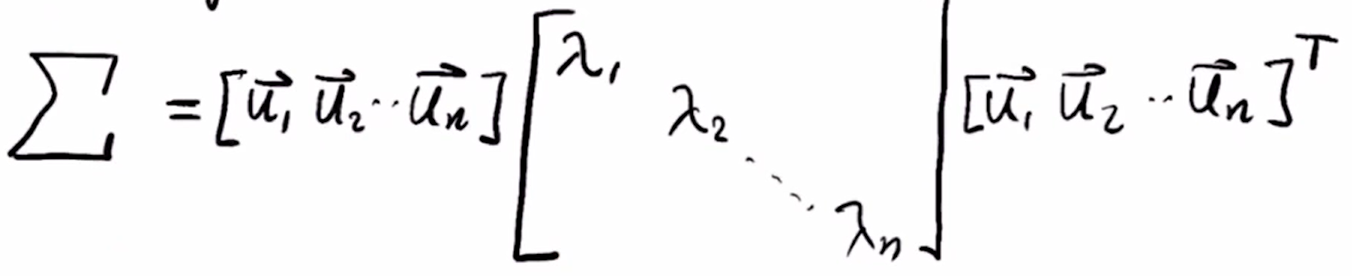 $\Sigma = [\vec{u}_1 \ \vec{u}_2 \cdots \vec{u}_n] \begin{bmatrix} \lambda_1 & & & \\ & \lambda_2 & & \\ & & \ddots & \\ & & & \lambda_n \end{bmatrix} [\vec{u}_1 \ \vec{u}_2 \cdots \vec{u}_n]^T$